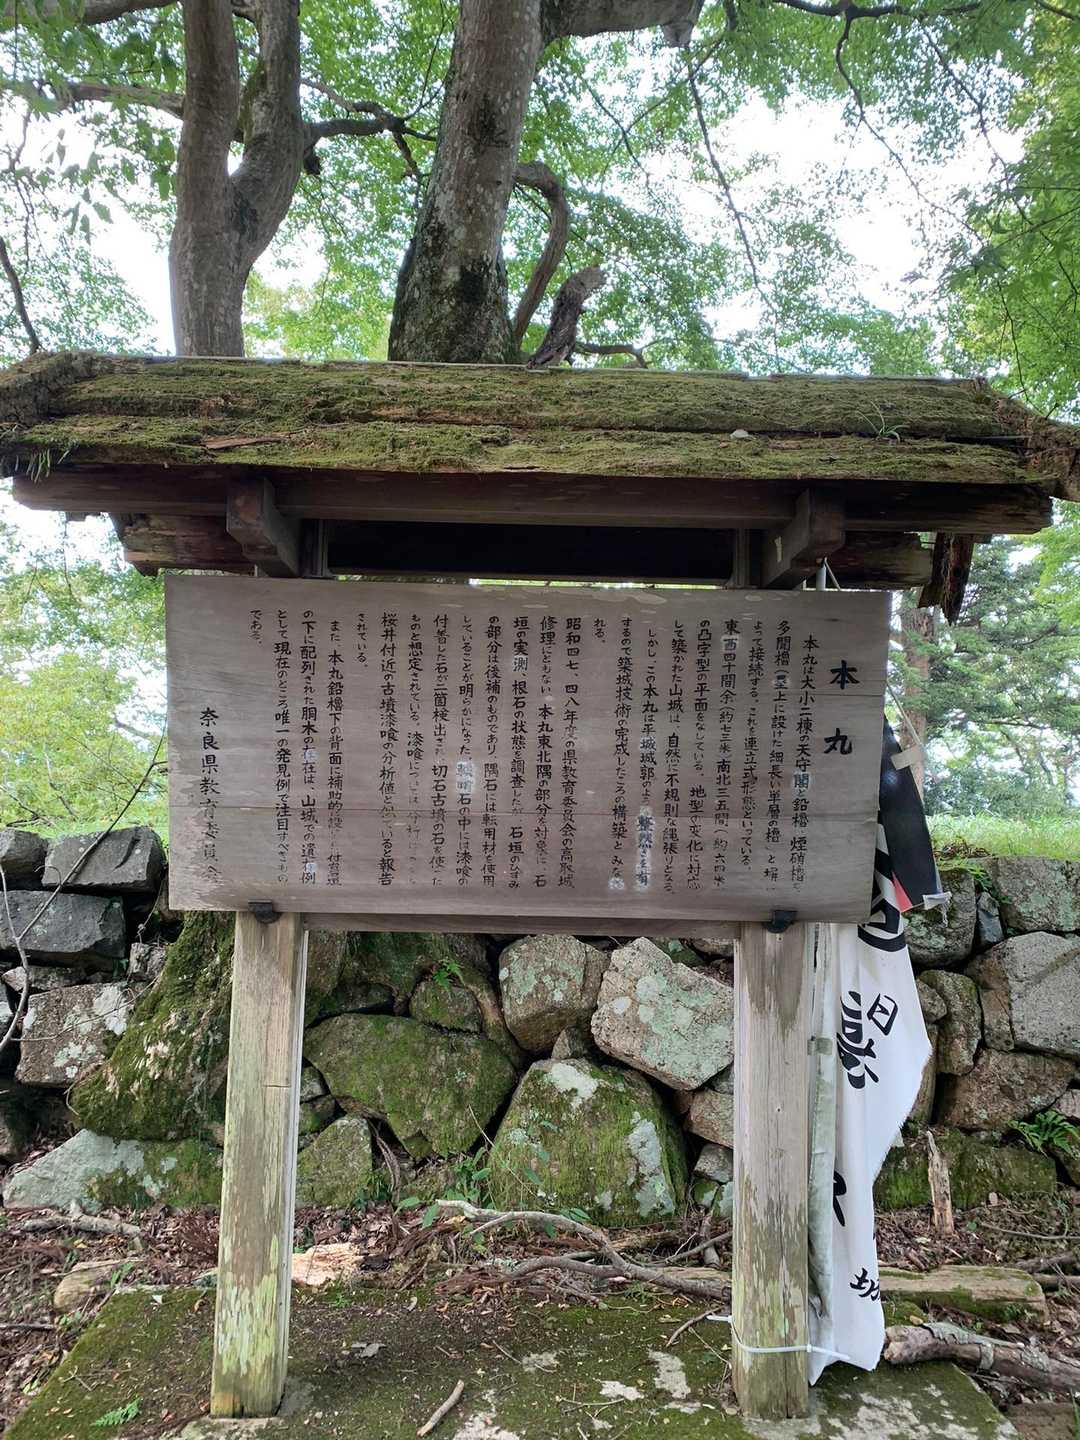 本丸
本丸は大小二棟の天守閣と鉛櫓、煙硝櫓を
多聞櫓(塁上に設けた細長い単層の櫓)と塀に
よって接続する。これを連立式形態といっている。
東西四十間余(約七三米)南北三五間(約六四米)
の凸字型の平面をなしている。地型の変化に対応
して築かれた山城は、自然に不規則な縄張りとなる。
しかし、この本丸は平城城郭のような整然さを有
するので築城技術の完成したころの構築とみな
れる。
昭和四七、四八年度の県教育委員会の高取城
修理にともない、本丸東北隅の部分を対象に、石
垣の実測、根石の状態を調査したが、石垣のひずみ
の部分は後補のものであり、隅石には転用材を使用
していることが明らかになった。転用石の中には漆喰の
付着した石が二箇検出され、切石古墳の石を使った
ものと想定されている。漆喰については分析
桜井付近の古墳漆喰の分析値と似ていると報告
されている。
また、本丸鉛櫓下の背面に補助的に設けた付石垣
の下に配列された胴木の存在は、山城での遺存例
として現在のところ唯一の発見例で注目すべきもの
である。
奈良県教育委員会